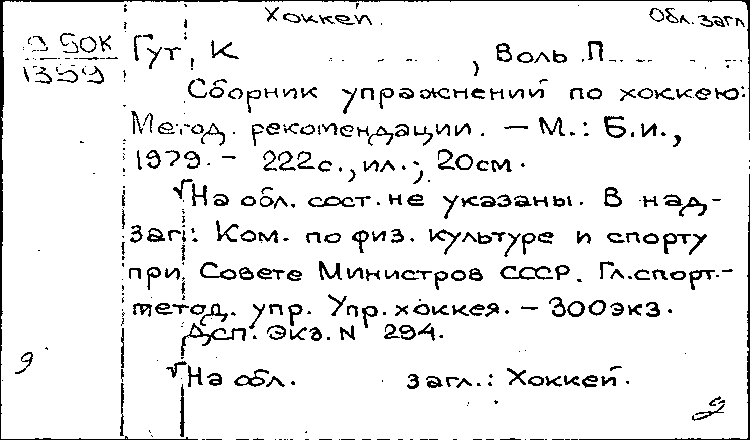 Хоккей.
Обл. загл
9 50К
1359
Гут, К , Воль П
Сборник упражнений по хоккею:
Метод. рекомендации. — М.: Б.и.,
1979. – 222с., ил.; 20см.
На обл. сост. не указаны. В над-
заг.: Ком. по физ. культуре и спорту
при Совете Министров СССР. Гл. спорт.-
метод. упр. Упр. хоккея. – 300экз.
Дсп. Экз. N 294.
9
На обл. загл.: Хоккей.
9